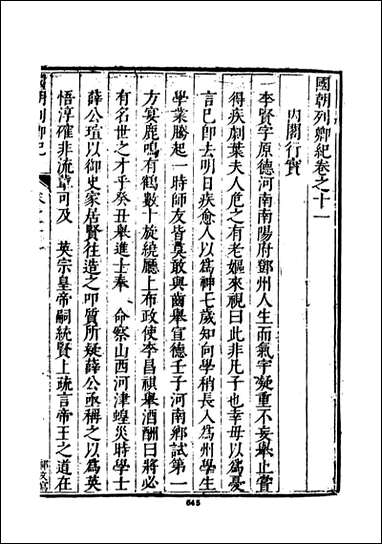 國朝列卿紀卷之十一
內閣行實
李賢字原德河南南陽府鄧州人生而氣宇凝重不妄舉止嘗
得疾劇葉夫人危之有老嫗來視曰此非凡子也幸毋以爲憂
言已卽去明日疾愈人以爲神七歲知向學稍長入爲州學生
學業勝起一時師友皆莫敢與齒舉宣德壬子河南鄉試第一
方宴鹿鳴有鶴數十旋繞廳上布政使李昌祺舉酒酬曰將必
有名世之才乎癸丑舉進士奉　命察山西河津蝗災時學士
薛公瑄以御史家居賢往造之叩質所疑薛公亟稱之以爲英
悟淳確非流輩可及　英宗皇帝嗣統賢上疏言帝王之道在
國朝列卿紀
645